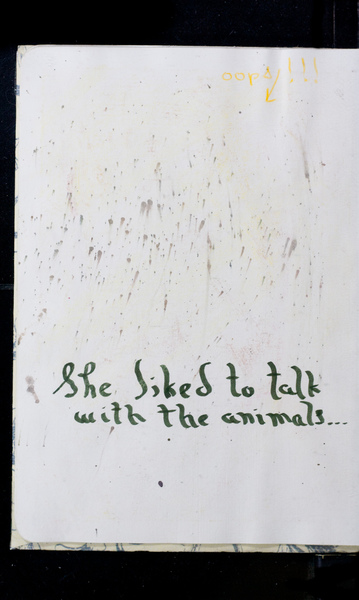 oops!!!
She liked to talk
with the animals...